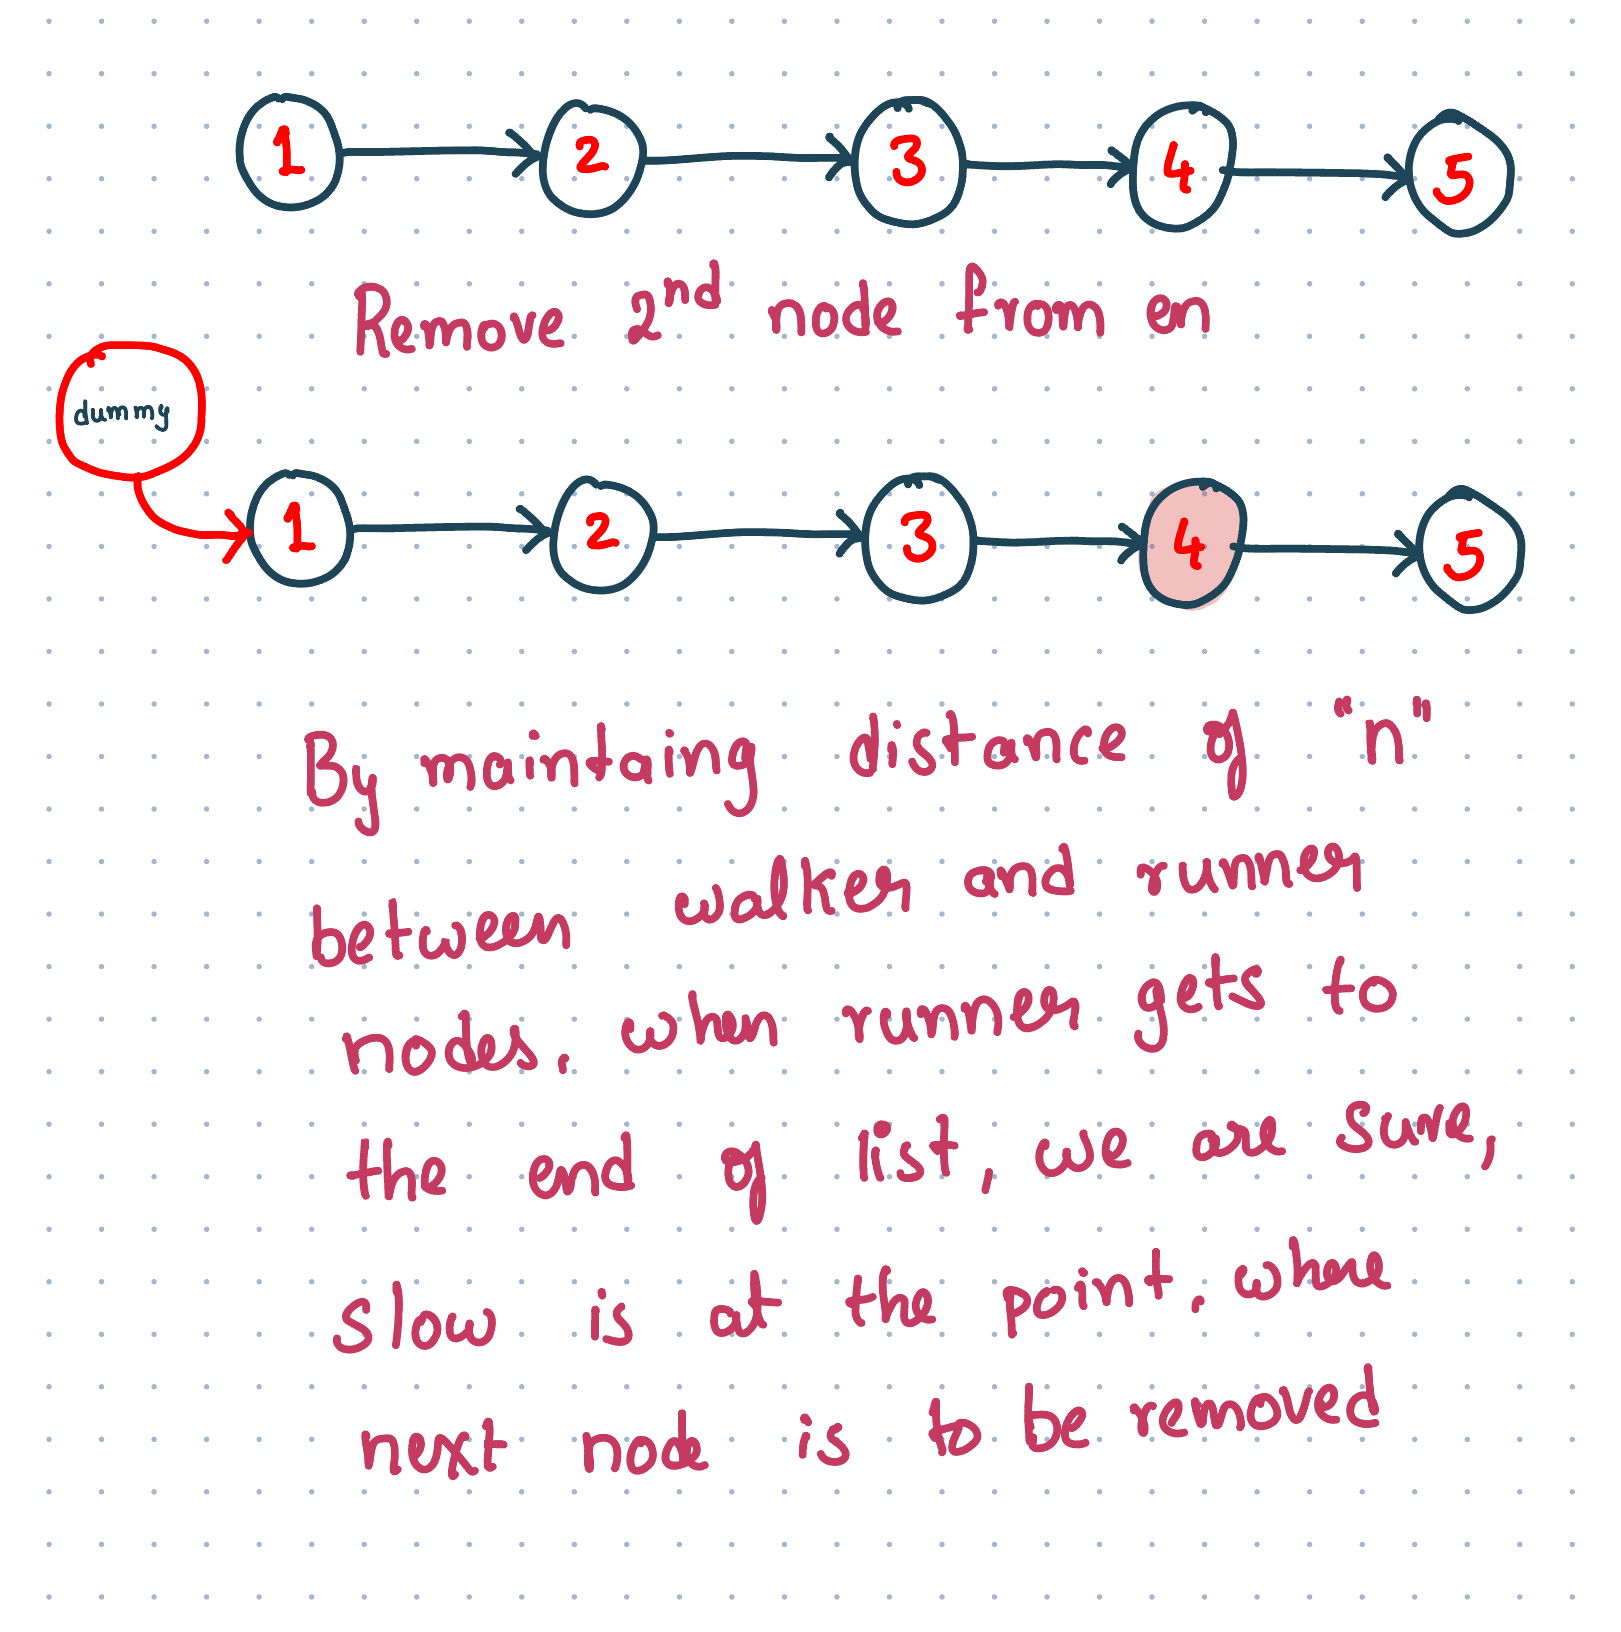 1 2 3 4 5
Remove 2nd node from en
dummy
1 2 3 4 5
By maintaing distance of "n"
between walker and runner
nodes. when runner gets to
the end of list, we are sure,
slow is at the point. where
next node is to be removed